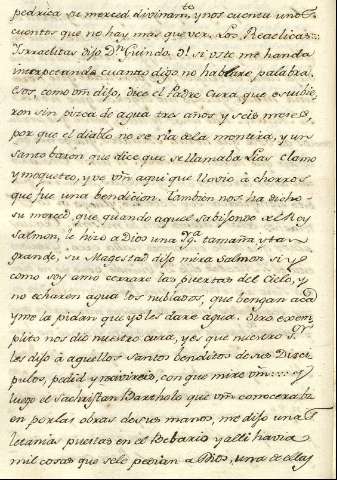 pedrica su merced divinamte. y nos cuenta unos
cuentos que no hay más que ver. Los Reaelicas
Ysraelitas dijo Dn. Guindo. Si! si vste me handa
interpecando cuanto digo no hablaré palabra.
Esos, como vm dijo, dice el Padre Cura, que estubie-
ron sin pizca de agua tres años y seis meses,
por que el diablo no se ria de la mentira, y un
santo baron que dice que se llamaba Lias clamo
y moqueteo, y ve vm aqui que llovio à chorros
que fue una bendicion. Tambien nos ha dicho
su merced, que quando aquel sabijondo del Rey
Salmon, le hizo a Dios una tamaña y tan
grande, su Magestad dijo mira Salmon si yo
como soy amo cerrare las puertas del Cielo, y
no echaren agua los nublados, que bengan acá
y me la pidan que yo les daré agua. Otro exem-
plito nos dió nuestro cura, y es que nuestro Sr.
les dijo à aquellos santos benditos de sus Disci-
pulos, pedid y recivireis, con que mire vm
luego el Sachristan Bartholo que vm conocerá bi-
en por las obras de sus manos, me dijo una
letanias puestas en el Brebario y alli havia
mil cosas que se le pedian a Dios, una de ellas